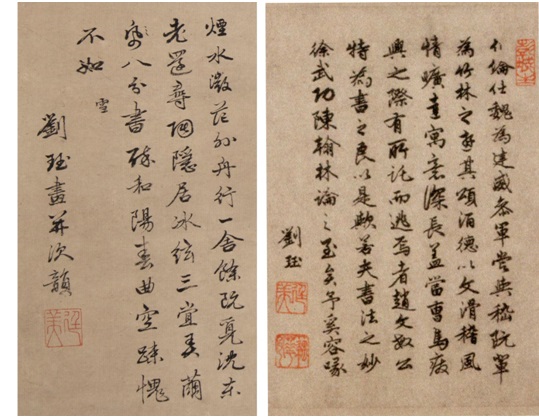 煙水微茫外舟行一舍餘既覓沈東
老還尋陶隱居冰弦三疊弄繭
帋八分書醉和陽春曲空疎愧
不如
劉珏畫并次韻
廷美
伯倫仕魏為建威參軍嘗與嵇阮輩
為竹林之游其頌酒德以文滑稽風
情曠達寓意深長蓋當曹馬廢
興之際有所託而逃焉者趙文敏公
特為書之良以是歟若夫書法之妙
徐武功陳翰林論之至矣予奚容喙
劉珏
廷美